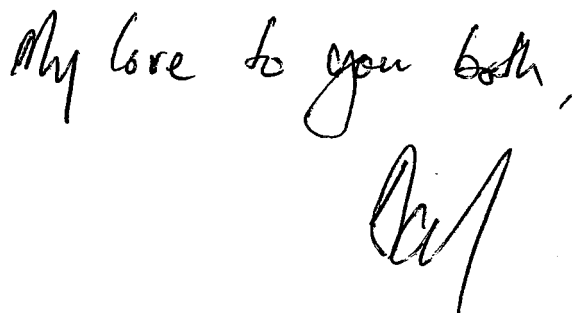 My love to you both,